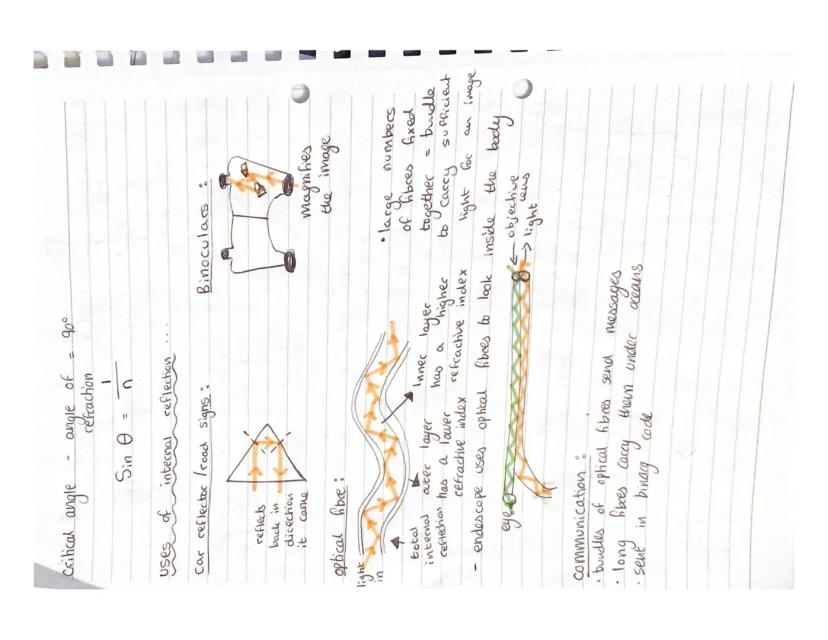 critical angle - angle of = 90°
refraction
Sin θ = 1/n
uses of internal reflection ...
Car reflector/road signs:
reflects
back in
direction
it came
Binoculars:
magnifies
the image
optical fibre:
light
in
total
internal
reflection
outer layer
has a lower
refractive index
Inner layer
has a higher
refractive index
• large numbers
of fibres fixed
together = bundle
to carry sufficient
light for an image
- endoscope uses optical fibres to look inside the body
eye
← objective
lens
→ light
communication:
• bundles of optical fibres send messages
• long fibres carry them under oceans
• sent in binary code